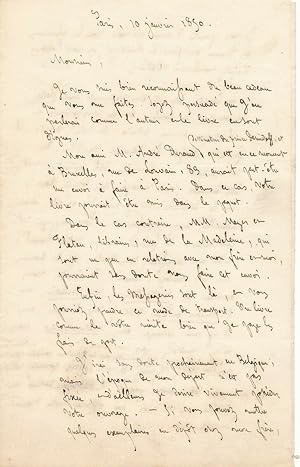 Paris, 10 janvier 1850.
Monsieur,
Je vous suis bien reconnaissant du beau cadeau
que vous me faites. Soyez persuadé que j'en
parlerai comme l'auteur et le livre en sont
dignes.
Mon ami M. André Durand, qui est en ce moment
à Bruxelles, rue de Louvain, 83, aurait peut-être
un envoi à faire à Paris. Dans ce cas, votre
livre pourrait être mis dans le paquet.
Dans le cas contraire, M.M. Meyer et
Flatau, libraires, rue de la Madeleine, qui
sont un peu en relations avec mon frère
pourraient sans doute vous faire cet envoi.
Enfin, les Messageries sont là, et vous
pouvez prendre ce mode de transport. Un livre
comme le vôtre mérite bien qu'on paye les
frais de port.
J'irai sans doute prochainement en Belgique,
mais l'époque de mon départ n'est pas
fixée, et d'ailleurs je désire vivement posséder
votre ouvrage. — Si vous pouvez mettre
quelques exemplaires en dépôt chez mon frère,